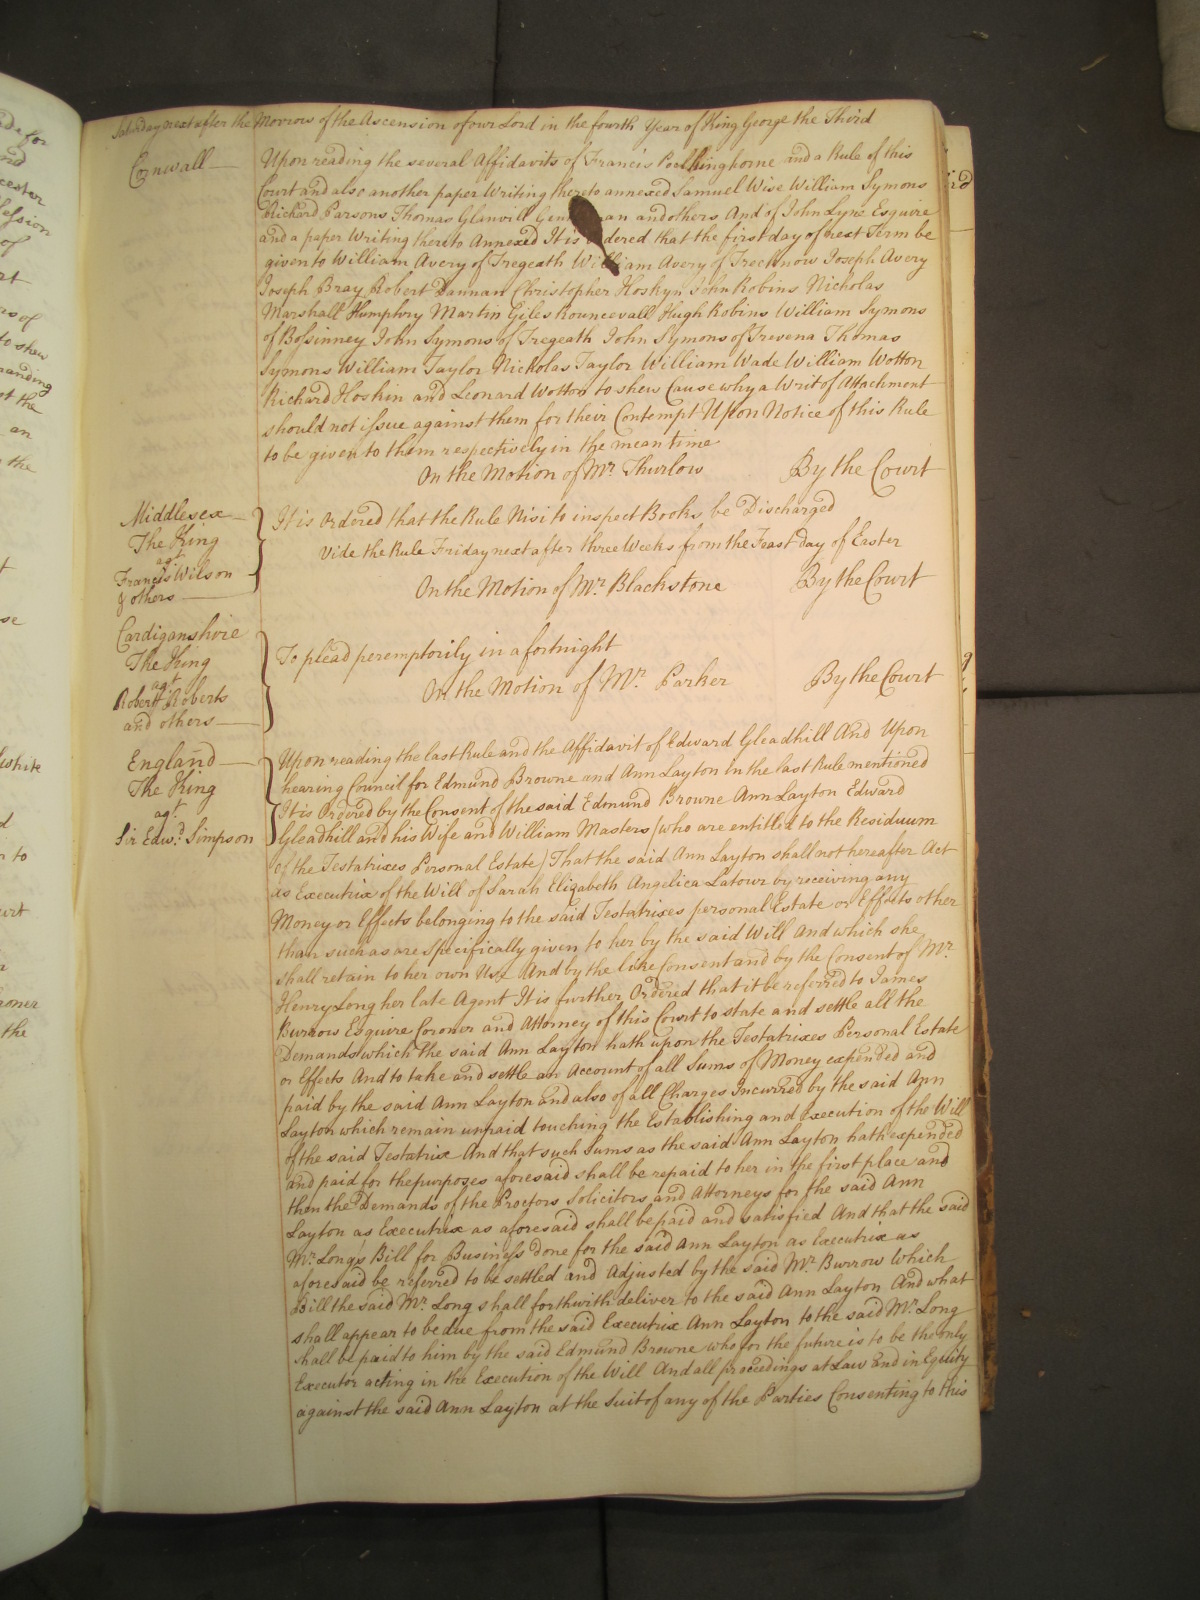 Saturday next after the Morrow of the Ascension of our Lord in the fourth Year of King George the Third
Cornwall
Upon reading the several Affidavits of Francis Poelkinghorne and a Rule of this
Court and also another paper Writing thereto annexed Samuel Wise William Symons
Richard Parsons Thomas Glanvill and others And of John Lyne Esquire
and a paper Writing thereto Annexed It is that the first day of next Term be
given to William Avery of Tregeath William Avery of Trecknow Joseph Avery
Joseph Bray Robert Dannan Christopher Hoskyn John Robins Nicholas
Marshall Humphry Martin Giles Rouncevall Hugh Robins William Symons
of Bossinney John Symons of Tregeath John Symons of Trevena Thomas
Symons William Taylor Nickolas Taylor William Wade William Wotton
Richard Hoskin and Leonard Wotton to shew Cause why a Writ of Attachment
should not issue against them for their Contempt Upon Notice of this Rule
to be given to them respectively in the mean time
On the Motion of Mr. Thurlow By the Court
Middlesex
The King
agt
Francis Wilson
& others
It is Ordered that the Rule Nisi to inspect Books be Discharged
Vide the Rule Friday next after three Weeks from the Feast day of Easter
On the Motion of Mr. Blackstone By the Court
Cardiganshire
The King
agt
Robert Roberts
and others
To plead peremptorily in a fortnight
On the Motion of Mr. Parker By the Court
England
The King
agt.
Sir Edwd. Simpson
Upon reading the last Rule and the Affidavit of Edward Gleadhill And Upon
hearing Council for Edmund Browne and Ann Layton in the last Rule mentioned
It is Ordered by the Consent of the said Edmund Browne Ann Layton Edward
Gleadhill and his Wife and William Masters (who are entitled to the Residuum
of the Testatrixes Personal Estate) That the said Ann Layton shall not hereafter Act
as Executrix of the Will of Sarah Elizabeth Angelica Latour by receiving any
Money or Effects belonging to the said Testatrixes personal Estate or Effects other
than such as are specifically given to her by the said Will And which she
shall retain to her own Use And by the like Consent and by the Consent of Mr.
Henry Long her late Agent It is further Ordered that it be referred to James
Burrow Esquire Coroner and Attorney of this Court to state and settle all the
Demands which the said Ann Layton hath upon the Testatrixes Personal Estate
or Effects And to take and settle an Account of all Sums of Money expended and
paid by the said Ann Layton and also of all Charges Incurred by the said Ann
Layton which remain unpaid touching the Establishing and Execution of the Will
of the said Testatrix And that such Sums as the said Ann Layton hath expended
and paid for the purposes aforesaid shall be repaid to her in the first place and
then the Demands of the Proctors Solicitors and Attorneys for the said Ann
Layton as Executrix as aforesaid shall be paid and satisfied And that the said
Mr. Long's Bill for Business done for the said Ann Layton as Executrix as
aforesaid be referred to be settled and Adjusted by the said Mr. Burrow Which
Bill the said Mr. Long shall forthwith deliver to the said Ann Layton And what
shall appear to be due from the said Executrix Ann Layton to the said Mr. Long
shall be paid to him by the said Edmund Browne who for the future is to be the only
Executor acting in the Execution of the Will And all proceedings at Law and in Equity
against the said Ann Layton at the Suit of any of the Parties Consenting to this